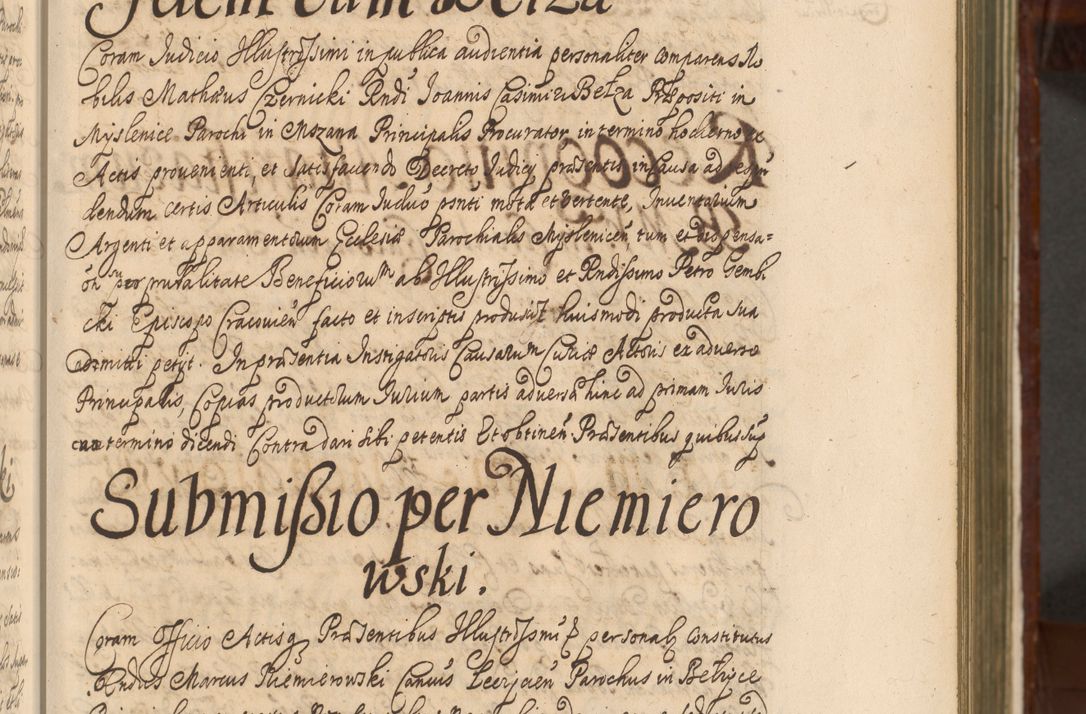 Idem cum Bełza
Coram Judicio Illustrissimi in publica audientia personaliter comparens No
bilis Mathæus Czernicki Rndi Joannis Casimiri Bełza Præpositi in
Myslenice Parochi in Mszana Principalis Procurator in termino hodierno ex
Actis provenienti, et satisfaciendo Decreto Judicij præsentis in Causa ad respon
dendum certis Articulis Coram Judicio psnti mota et vertente, Inventarium
Argenti et apparamentorum Ecclesiæ Parochialis Myslenicen, tum et dispensa=
oñ pro pluralitate Beneficiorum ab Illustrissimo et Rndissimo Petro Gembi
cki Episcopo Cracovien facto et in scriptis produxit huiusmodi producta sua
admitti petijt. In præsentia Instigatoris Causarum Curiæ Actoris ex adverso
Principalis, Copias productorum Jurium partis adversæ hinc ad primam Juris
termino dicendi Contra dari sibi petentis et obtinen Præsentibus quibus sup
Submißio per Niemiero
wski.
Coram Officio Actisq Præsentibus Illustrissimi personal constitutus
Rndus Marcus Niemierowski Canus Parochus in Bełzyce